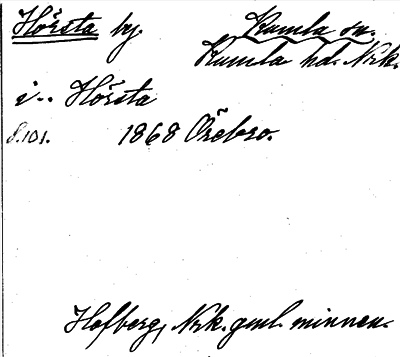 Hörsta by. Kumla sn.
Kumla hd. Nrk.
i.. Hörsta
s.101. 1868 Örebro.
Hofberg, Nrk. gml. minnen.